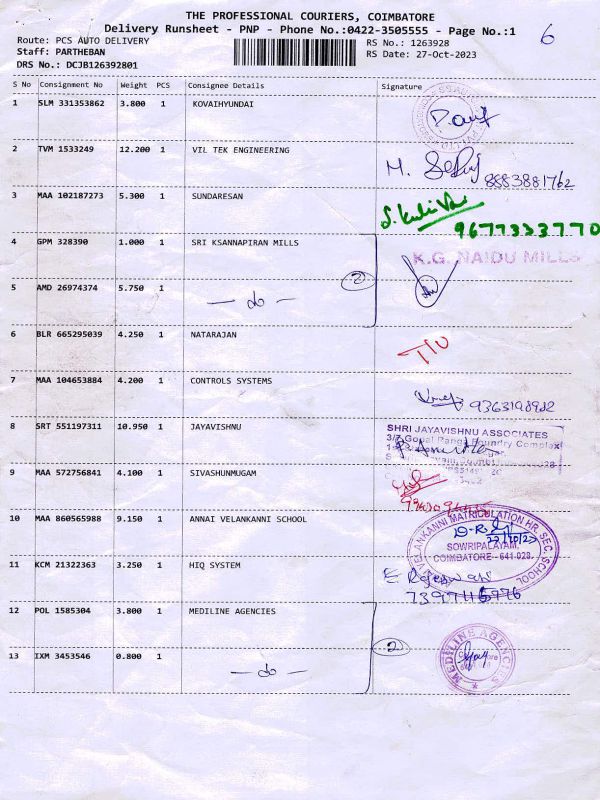 THE PROFESSIONAL COURIERS, COIMBATORE
Delivery Runsheet - PNP - Phone No.:0422-3505555 - Page No.:1
6
Route: PCS AUTO DELIVERY
RS No.: 1263928
Staff: PARTHEBAN
RS Date: 27-Oct-2023
DRS No.: DCJB126392801
S No Consignment No Weight PCS Consignee Details Signature
1 SLM 331353862 3.800 1 KOVAIHYUNDAI
2 TVM 1533249 12.200 1 VIL TEK ENGINEERING
8883881762
3 MAA 102187273 5.300 1 SUNDARESAN
9677333770
4 GPM 328390 1.000 1 SRI KSANNAPIRAN MILLS
K.G. NAIDU MILLS
2
5 AMD 26974374 5.750 1 — do —
6 BLR 665295039 4.250 1 NATARAJAN
7 MAA 104653884 4.200 1 CONTROLS SYSTEMS
8 SRT 551197311 10.950 1 JAYAVISHNU
SHRI JAYAVISHNU ASSOCIATES
9 MAA 572756841 4.100 1 SIVASHUNMUGAM
10 MAA 860565988 9.150 1 ANNAI VELANKANNI SCHOOL
VELANKANNI MATRICULATION HR. SEC. SCHOOL
SOWRIPALAYAM,
COIMBATORE - 641 028.
11 KCM 21322363 3.250 1 HIQ SYSTEM
12 POL 1585304 3.800 1 MEDILINE AGENCIES
2
MEDILINE AGENCIES
13 IXM 3453546 0.800 1 — do —